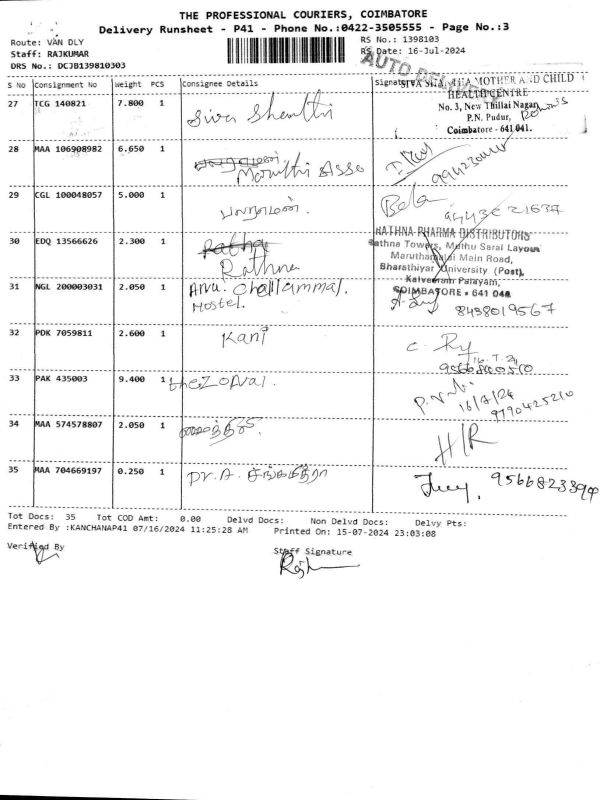 THE PROFESSIONAL COURIERS, COIMBATORE
Delivery Runsheet - P41 - Phone No.:0422-3505555 - Page No.:3
Route: VAN DLY
RS No.: 1398103
Staff: RAJKUMAR
RS Date: 16-Jul-2024
DRS No.: DCJB139810303
AUTO
S No Consignment No Weight PCS Consignee Details Signature
27 TCG 140821 7.800 1 Siva Shanthi
SIVA SHANTHA MOTHER AND CHILD
HEALTH CENTRE
No. 3, New Thillai Nagar,
P.N. Pudur,
Coimbatore - 641 041.
28 MAA 106908982 6.650 1
Maruthi Asso
29 CGL 100048057 5.000 1
Bala
30 EDQ 13566626 2.300 1 Ratha
Rathna
RATHNA PHARMA DISTRIBUTORS
Rathna Towers, Muthu Sarai Layout
Maruthamalai Main Road,
Bharathiyar University (Post),
Kalveeram Palayam,
COIMBATORE - 641 046
31 NGL 200003031 2.050 1 Anu. Challammal.
Hostel.
8438019567
32 PDK 7059811 2.600 1 Kani
33 PAK 435003 9.400 1
16/7/24
9790425210
34 MAA 574578807 2.050 1
H/R
35 MAA 704669197 0.250 1 Dr. A. சங்கமித்ரா
Tot Docs: 35 Tot COD Amt: 0.00 Delvd Docs: Non Delvd Docs: Delvy Pts:
Entered By :KANCHANAP41 07/16/2024 11:25:28 AM Printed On: 15-07-2024 23:03:08
Verified By
Staff Signature